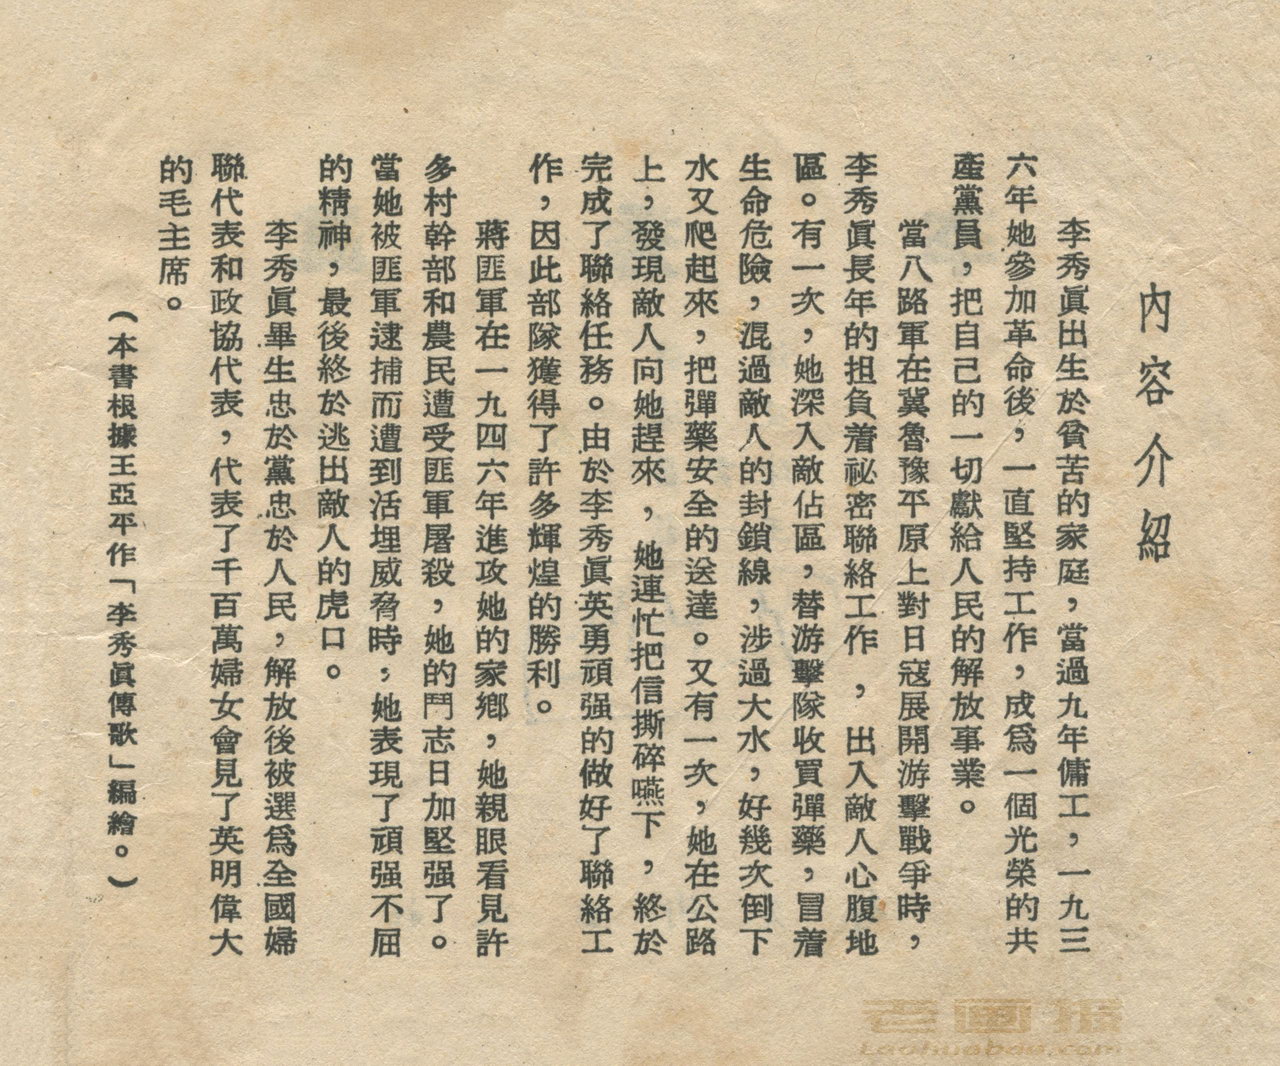 內容介紹
李秀眞出生於貧苦的家庭，當過九年傭工，一九三
六年她參加革命後，一直堅持工作，成爲一個光榮的共
產黨員，把自己的一切獻給人民的解放事業。
當八路軍在冀魯豫平原上對日寇展開游擊戰爭時，
李秀眞長年的担負着祕密聯絡工作，出入敵人心腹地
區。有一次，她深入敵佔區，替游擊隊收買彈藥，冒着
生命危險，混過敵人的封鎖線，涉過大水，好幾次倒下
水又爬起來，把彈藥安全的送達。又有一次，她在公路
上，發現敵人向她趕來，她連忙把信撕碎嚥下，終於
完成了聯絡任務。由於李秀眞英勇頑强的做好了聯絡工
作，因此部隊獲得了許多輝煌的勝利。
蔣匪軍在一九四六年進攻她的家鄉，她親眼看見許
多村幹部和農民遭受匪軍屠殺，她的鬥志日加堅强了。
當她被匪軍逮捕而遭到活埋威脅時，她表現了頑强不屈
的精神，最後終於逃出敵人的虎口。
李秀眞畢生忠於黨忠於人民，解放後被選爲全國婦
聯代表和政協代表，代表了千百萬婦女會見了英明偉大
的毛主席。
（本書根據王亞平作「李秀眞傳歌」編繪。）
老画报
laohuabao.com